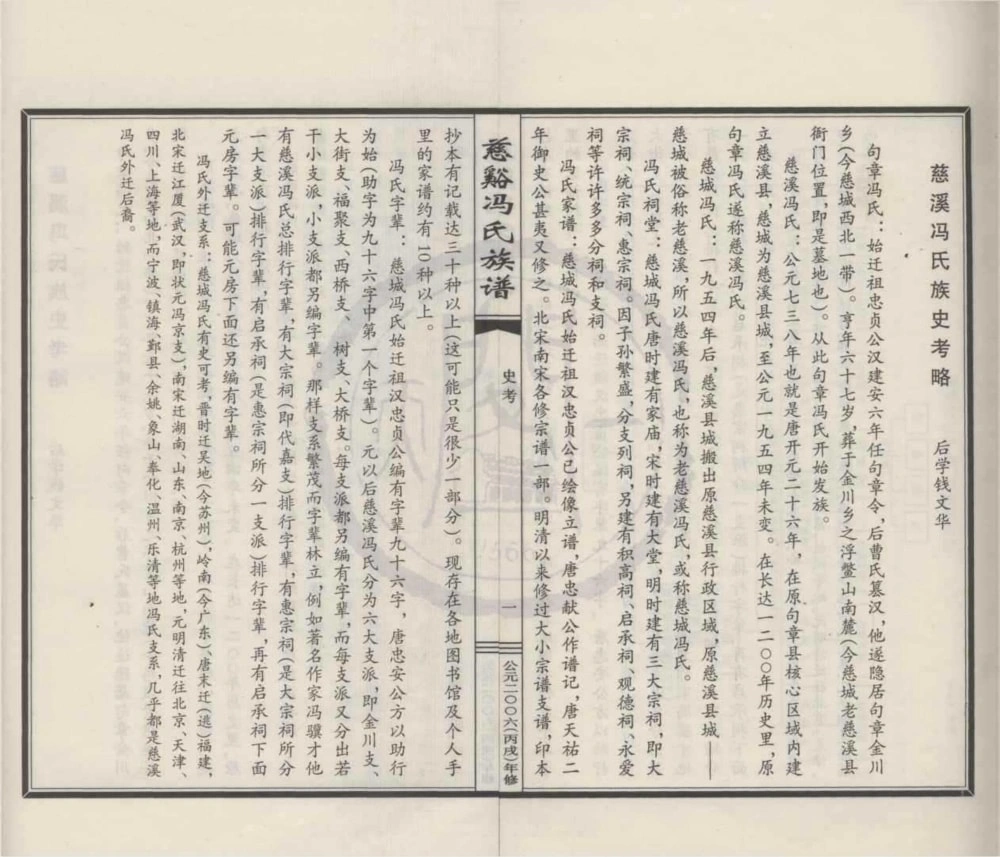 慈溪冯氏族史考略
后学钱文华
句章冯氏：始迁祖忠贞公汉建安六年任句章令，后曹氏篡汉，他遂隐居句章金川
乡（今慈城西北一带）。享年六十七岁，葬于金川乡之浮鳖山南麓（今慈城老慈溪县
衙门位置，即是墓地也）。从此句章冯氏开始发族。
慈溪冯氏：公元七三八年也就是唐开元二十六年，在原句章县核心区域内建
立慈溪县，慈城为慈溪县城，至公元一九五四年未变。在长达一二〇〇年历史里，原
句章冯氏遂称慈溪冯氏。
慈城冯氏：一九五四年后，慈溪县城搬出原慈溪县行政区域，原慈溪县城——
慈城被俗称老慈溪，所以慈溪冯氏，也称为老慈溪冯氏，或称慈城冯氏。
冯氏祠堂：慈城冯氏唐时建有家庙，宋时建有大堂，明时建有三大宗祠，即大
宗祠、统宗祠、惠宗祠。因子孙繁盛，分支列祠，另建有积高祠、启承祠、观德祠、永爱
祠等许许多多分祠和支祠。
冯氏家谱：慈城冯氏始迁祖汉忠贞公已绘像立谱，唐忠献公作谱记，唐天祐二
年御史公甚夷又修之。北宋南宋各修宗谱一部。明清以来修过大小宗谱支谱，印本
慈谿冯氏族谱
史考
一
公元二〇〇六（丙戌）年修
抄本有记载达三十种以上（这可能只是很少一部分）。现存在各地图书馆及个人手
里的家谱约有10种以上。
冯氏字辈：慈城冯氏始迁祖汉忠贞公编有字辈九十六字，唐忠安公方以助行
为始（助字为九十六字中第一个字辈）。元以后慈溪冯氏分为六大支派，即金川支、
大街支、福聚支、西桥支、树支、大桥支。每支派都另编有字辈，而每支派又分出若
干小支派，小支派都另编字辈。那样支系繁茂而字辈林立，例如著名作家冯骥才他
有慈溪冯氏总排行字辈，有大宗祠（即代嘉支）排行字辈，有惠宗祠（是大宗祠所分
一大支派）排行字辈，有启承祠（是惠宗祠所分一支派）排行字辈，再有启承祠下面
元房字辈。可能元房下面还另编有字辈。
冯氏外迁支系：慈城冯氏有史可考，晋时迁吴地（今苏州），岭南（今广东）、唐末迁（逃）福建，
北宋迁江厦（武汉，即状元冯京支），南宋迁湖南、山东、南京、杭州等地，元明清迁往北京、天津、
四川、上海等地，而宁波、镇海、鄞县、余姚、象山、奉化、温州、乐清等地冯氏支系，几乎都是慈溪
冯氏外迁后裔。